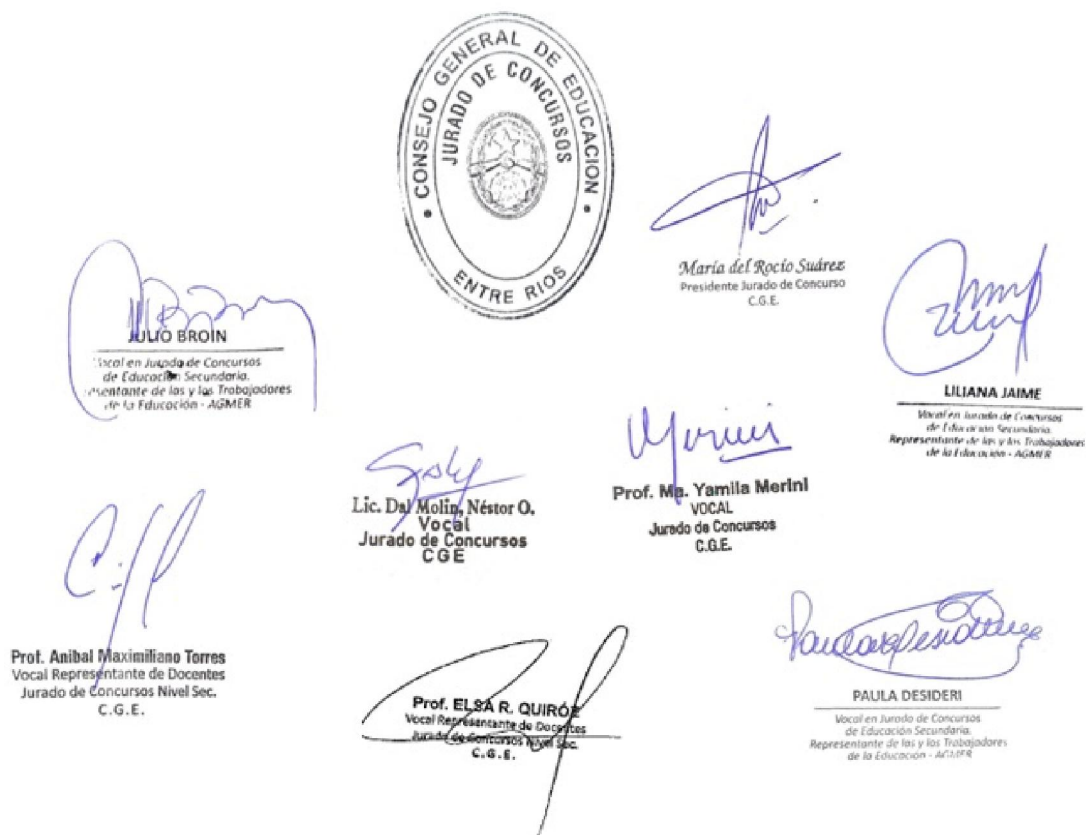 CONSEJO GENERAL DE EDUCACION
JURADO DE CONCURSOS
ENTRE RIOS
María del Rocío Suárez
Presidente Jurado de Concurso
C.G.E.
JULIO BROIN
Vocal en Jurado de Concursos
de Educación Secundaria.
de las y los Trabajadores
de la Educación - AGMER
LILIANA JAIME
Vocal en Jurado de Concursos
de Educación Secundaria.
Representante de las y los Trabajadores
de la Educación - AGMER
Lic. Dal Molin, Néstor O.
Vocal
Jurado de Concursos
CGE
Merini
Prof. Ma. Yamila Merini
VOCAL
Jurado de Concursos
C.G.E.
Prof. Anibal Maximiliano Torres
Vocal Representante de Docentes
Jurado de Concursos Nivel Sec.
C.G.E.
Prof. ELSA R. QUIRÓZ
Vocal Representante de Docentes
Jurado de Concursos Nivel Sec.
C.G.E.
PAULA DESIDERI
Vocal en Jurado de Concursos
de Educación Secundaria.
Representante de las y los Trabajadores
de la Educación - AGMER